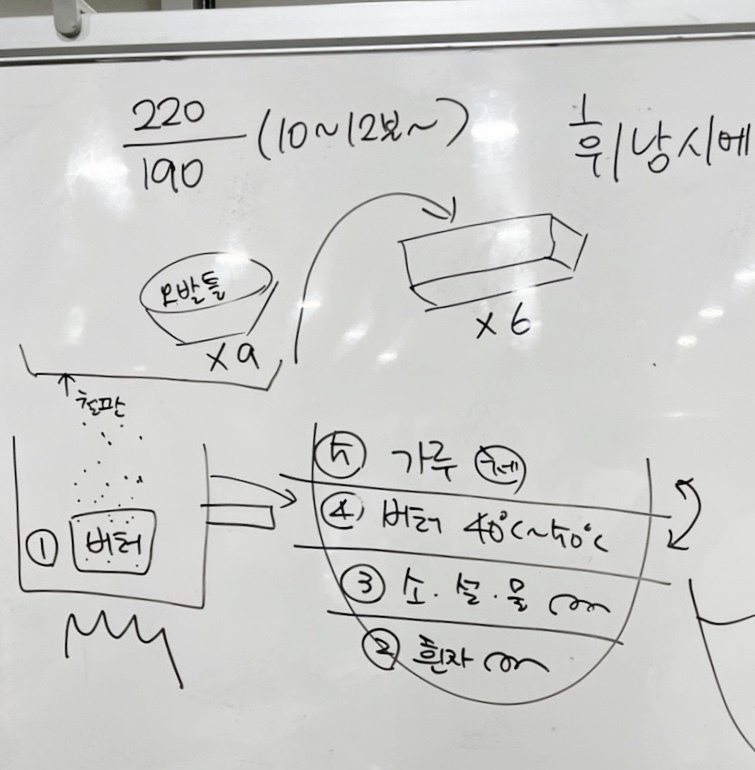 220
190
(10~12분~)
위낭시에
오발틀
x9
x6
철판
① 버터
⑤ 가루 체
④ 버터 40°C~50°C
③ 소.설.물
② 흰자